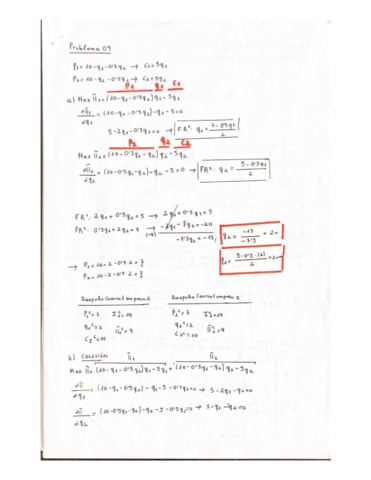 Problema 09
P₁ = 10 - q₁ - 0'5q₂ → C₁ = 5q₁
P₂ = 10 - q₂ - 0'5q₁ → C₂ = 5q₂
P1 q1 C1
a) Max Π₁ = (10 - q₁ - 0'5q₂) q₁ - 5q₁
dΠ₁/dq₁ = (10 - q₁ - 0'5q₂) - q₁ - 5 = 0
5 - 2q₁ - 0'5q₂ = 0 → FR¹: q₁ = 5 - 0'5q₂ / 2
P2 q2 C2
Max Π₂ = (10 - 0'5q₁ - q₂) q₂ - 5q₂
dΠ₂/dq₂ = (10 - 0.5q₁ - q₂) - q₂ - 5 = 0 → FR²: q₂ = 5 - 0.5q₁ / 2
FR¹: 2q₁ + 0'5q₂ = 5 → 2q₁ + 0'5q₂ = 5
FR²: 0'5q₁ + 2q₂ = 5 → -2q₁ - 8q₂ = -20
-7'5q₂ = -15
q₂ = -15 / -7'5 = 2
q₁ = 5 - 0'5 · (2) / 2 = 2
→ P₁ = 10 - 2 - 0'5 · 2 = 7
P₂ = 10 - 2 - 0'5 · 2 = 7
Duopolio Cournot empresa 1 Duopolio Cournot empresa 2
P₁ᶜ = 7 P₂ᶜ = 7
q₁ᶜ = 2 Π₁ᶜ = 4 q₂ᶜ = 2 Π₂ᶜ = 4
C₁ᶜ = 10 C₂ᶜ = 10
b) COLUSIÓN Π₁ Π₂
Max Π = (10 - q₁ - 0'5q₂) q₁ - 5q₁ + (10 - 0'5q₁ - q₂) q₂ - 5q₂
dΠ/dq₁ = (10 - q₁ - 0'5q₂) - q₁ - 5 - 0'5q₂ = 0 → 5 - 2q₁ - q₂ = 0
dΠ/dq₂ = (10 - 0'5q₁ - q₂) - q₂ - 5 - 0'5q₁ = 0 → 5 - q₁ - 2q₂ = 0